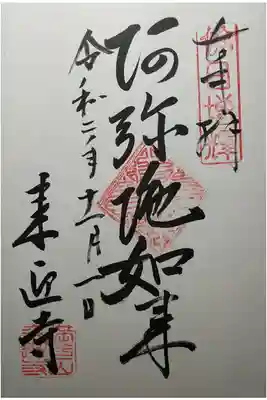 奉拝
阿弥陀如来
令和二年十一月一日
来迎寺